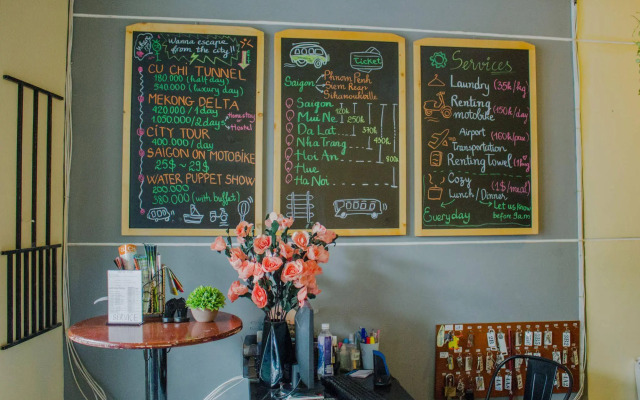 Wanna escape
from the city!!
CU CHI TUNNEL
180.000 (half day)
540.000 (luxury day)
MEKONG DELTA
420.000 / 1 day
1.050.000 / 2 days
Homestay
or
Hostel
CITY TOUR
400.000 / day
SAIGON ON MOTOBIKE
25$ - 29$
WATER PUPPET SHOW
200.000
380.000 (with buffet)
Ticket
Saigon
Phnom Penh
Siem Reap
Sihanoukville
Saigon
Mui Ne
Da Lat
Nha Trang
Hoi An
Hue
Ha Noi
120k
250k
370k
450k
Services
Laundry (35k/kg)
Renting
motobike (150k/day)
Airport
Transportation (160k/pax)
Renting Towel
Cozy
Lunch/Dinner (1$/meal)
Everyday
Let us know
before 9a.m